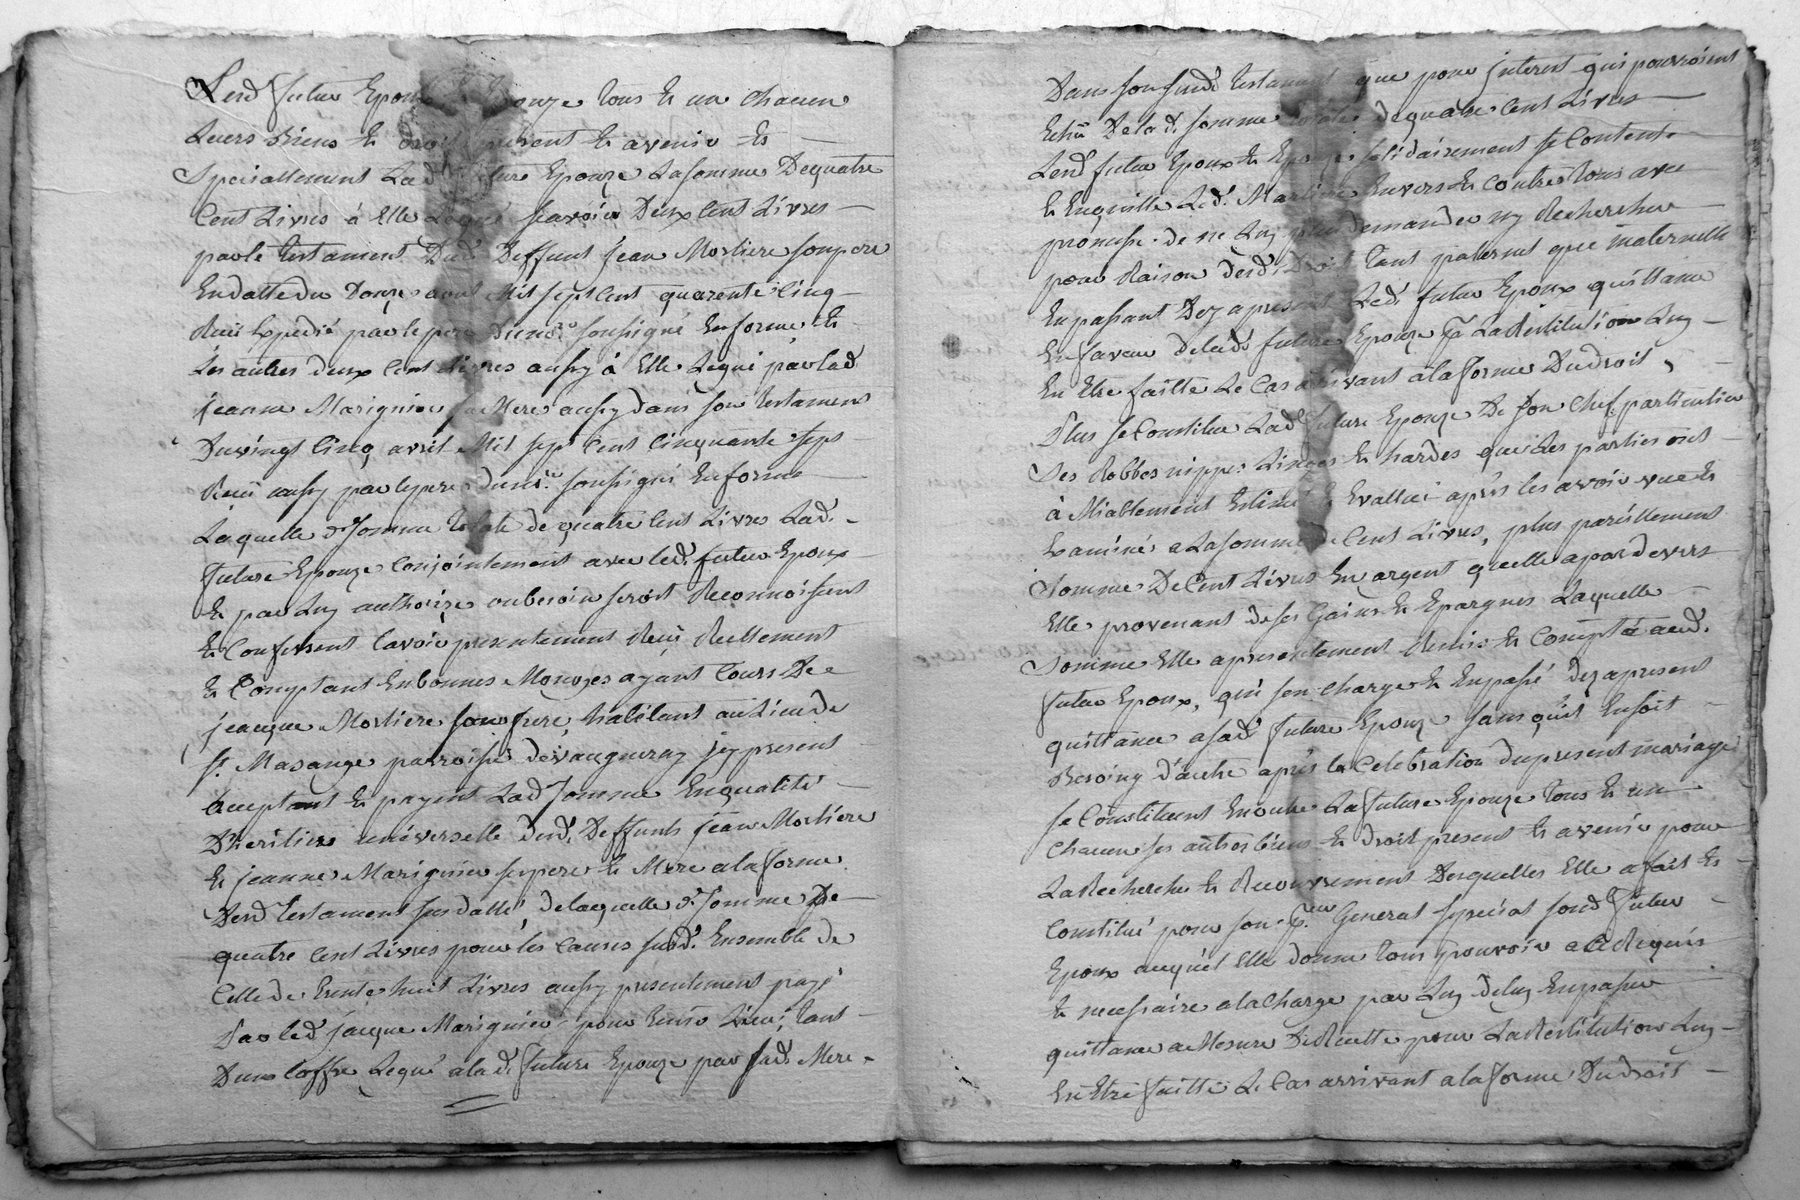 Lesd futur Epoux Epouze tous et un chacun
Leurs Biens et droit present et avenir et
Speciallement Lad future Epouze Lasomme Dequatre
Cent Livres à Elle Legué scavoir Deux Cent Livres
par le testament Dud Deffunt jean Morliere son pere
En datte du Douze aout Mil sept Cent quarente Cinq
Receu Expedié par le pere Dunore soussigné En forme et
Les autres deux Cent Livres aussy à Elle Legué par lad
jeanne Marignier sa Mere aussy dans son testament
Du vingt Cinq avril Mil sept Cent Cinquante sept
Receu aussy par le pere dunre soussigné En forme
Laquelle de somme totale de quatre Cent Livres Lad.
future Epouze Conjointement avec led. futur Epoux
Et par Luy authorizée au besoin seroit Reconnoissent
Et Confessent l'avoir presentement Receu Reellement
Et Comptant En bonnes Monoyes ayant Cours De
jeacque Morliere son frere, habitant au Lieu de
st Masange parroisse devaugneray jcy present
acceptant Et payant Lad somme En qualité
D'heritier universelle desd. Deffunts jean Morliere
Et jeanne Marignier ses pere et Mere a la forme
Desd testament sus datté, de laquelle de somme De
quatre Cent Livres pour les Causes susd. Ensemble de
Celle de trente huit Livres aussy presentement payé
Par led jacque Marignier pour tenir Lieu, tant
D'un Coffre Legué a lad. future Epouze par sad. Mere
Dans son susd testament que pour jnterest qui pourroient
Echu De lad. somme totale de quatre Cent Livres
Lesd futur Epoux Et Epouze solidairement se Contente
Et En quitte Led. Morliere Envers Et Contre tous avec
promesse de ne Luy plus demander ny Rechercher
pour Raison desd. Droit tant paternel que maternelle
En passant Dez apresent Led. futur Epoux quittance
En faveur de lad. future Epouze pr La Restitution Luy
En Etre faitte Le Cas arrivant a la forme Du droit,
Plus se Constitue Lad future Epouze De son Chef particulier
Ses Robbes nippes Linges Et hardes que Les parties ont
à Miablement Estimé Et Evallué après les avoir vue Et
Examinés a La somme de Cent Livres, plus pareillement
Somme De Cent Livres En argent quelle a par devers
Elle provenant de ses Gains Et Epargnes Laquelle
Somme Elle a presentement Remis Et Compté aud.
futur Epoux, qui sen Charge Et En passe dez apresent
quittance a sad future Epouze sans qu'il En soit
Besoing d'autre après la Celebration du present mariage
se Constituent En outre La future Epouze tous Et un
Chacun ses autres biens Et droit present et avenir pour
La Recherche Et Recouvrement Desquelles Elle a fait Et
Constitué pour son pr. eur General special sond futur
Epoux auquel Elle donne tous pouvoir a ce Requis
Et necessaire a la Charge par Luy deluy En passer
quittance a Mesure De Recette pour La Restitution Luy
En Etre faitte Le Cas arrivant a la forme Du droit